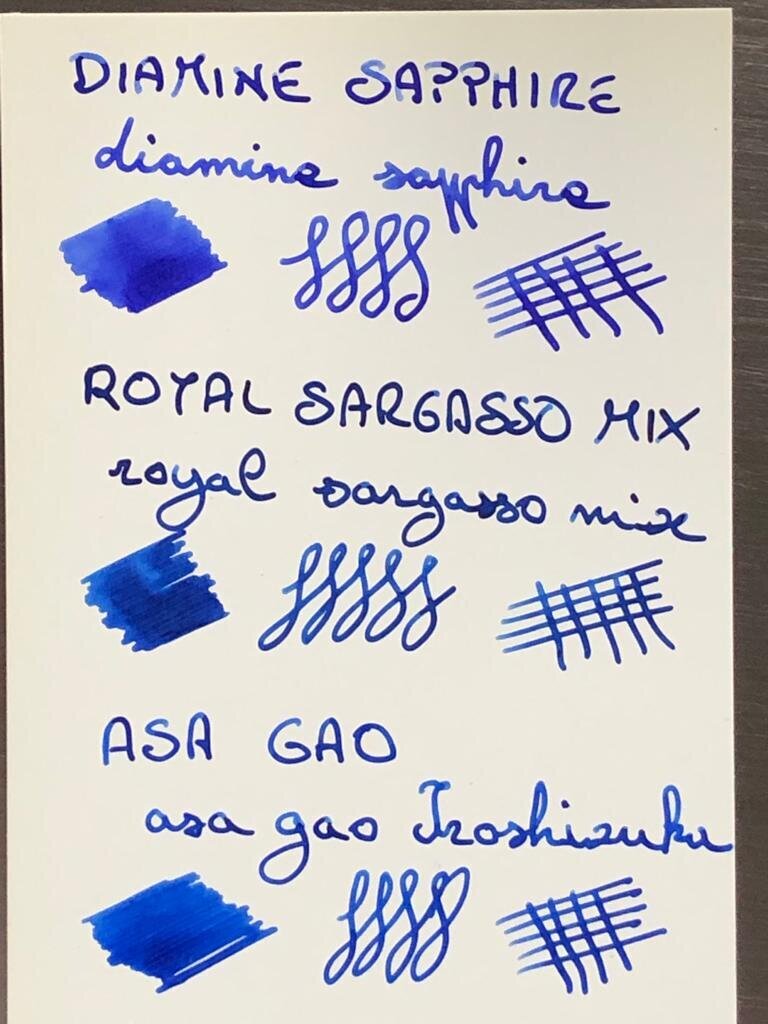 DIAMINE SAPPHIRE
diamine sapphire
ROYAL SARGASSO MIX
royal sargasso mix
ASA GAO
asa gao Iroshizuku